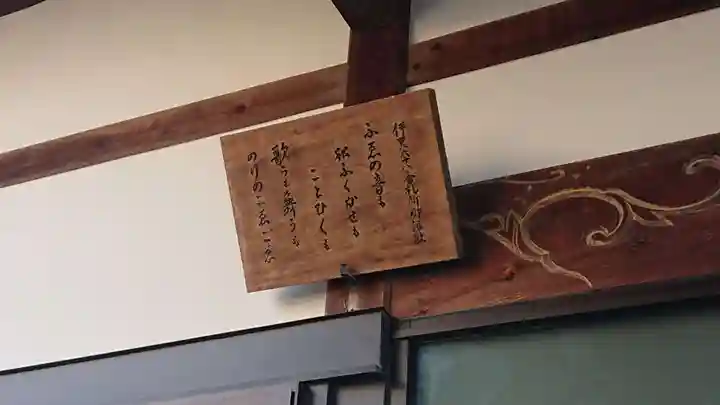 伊豆八十八札所御詠歌
ふゑの音も
松ふくかぜも
ことひくも
歌うも舞うも
のりのこゑごゑ